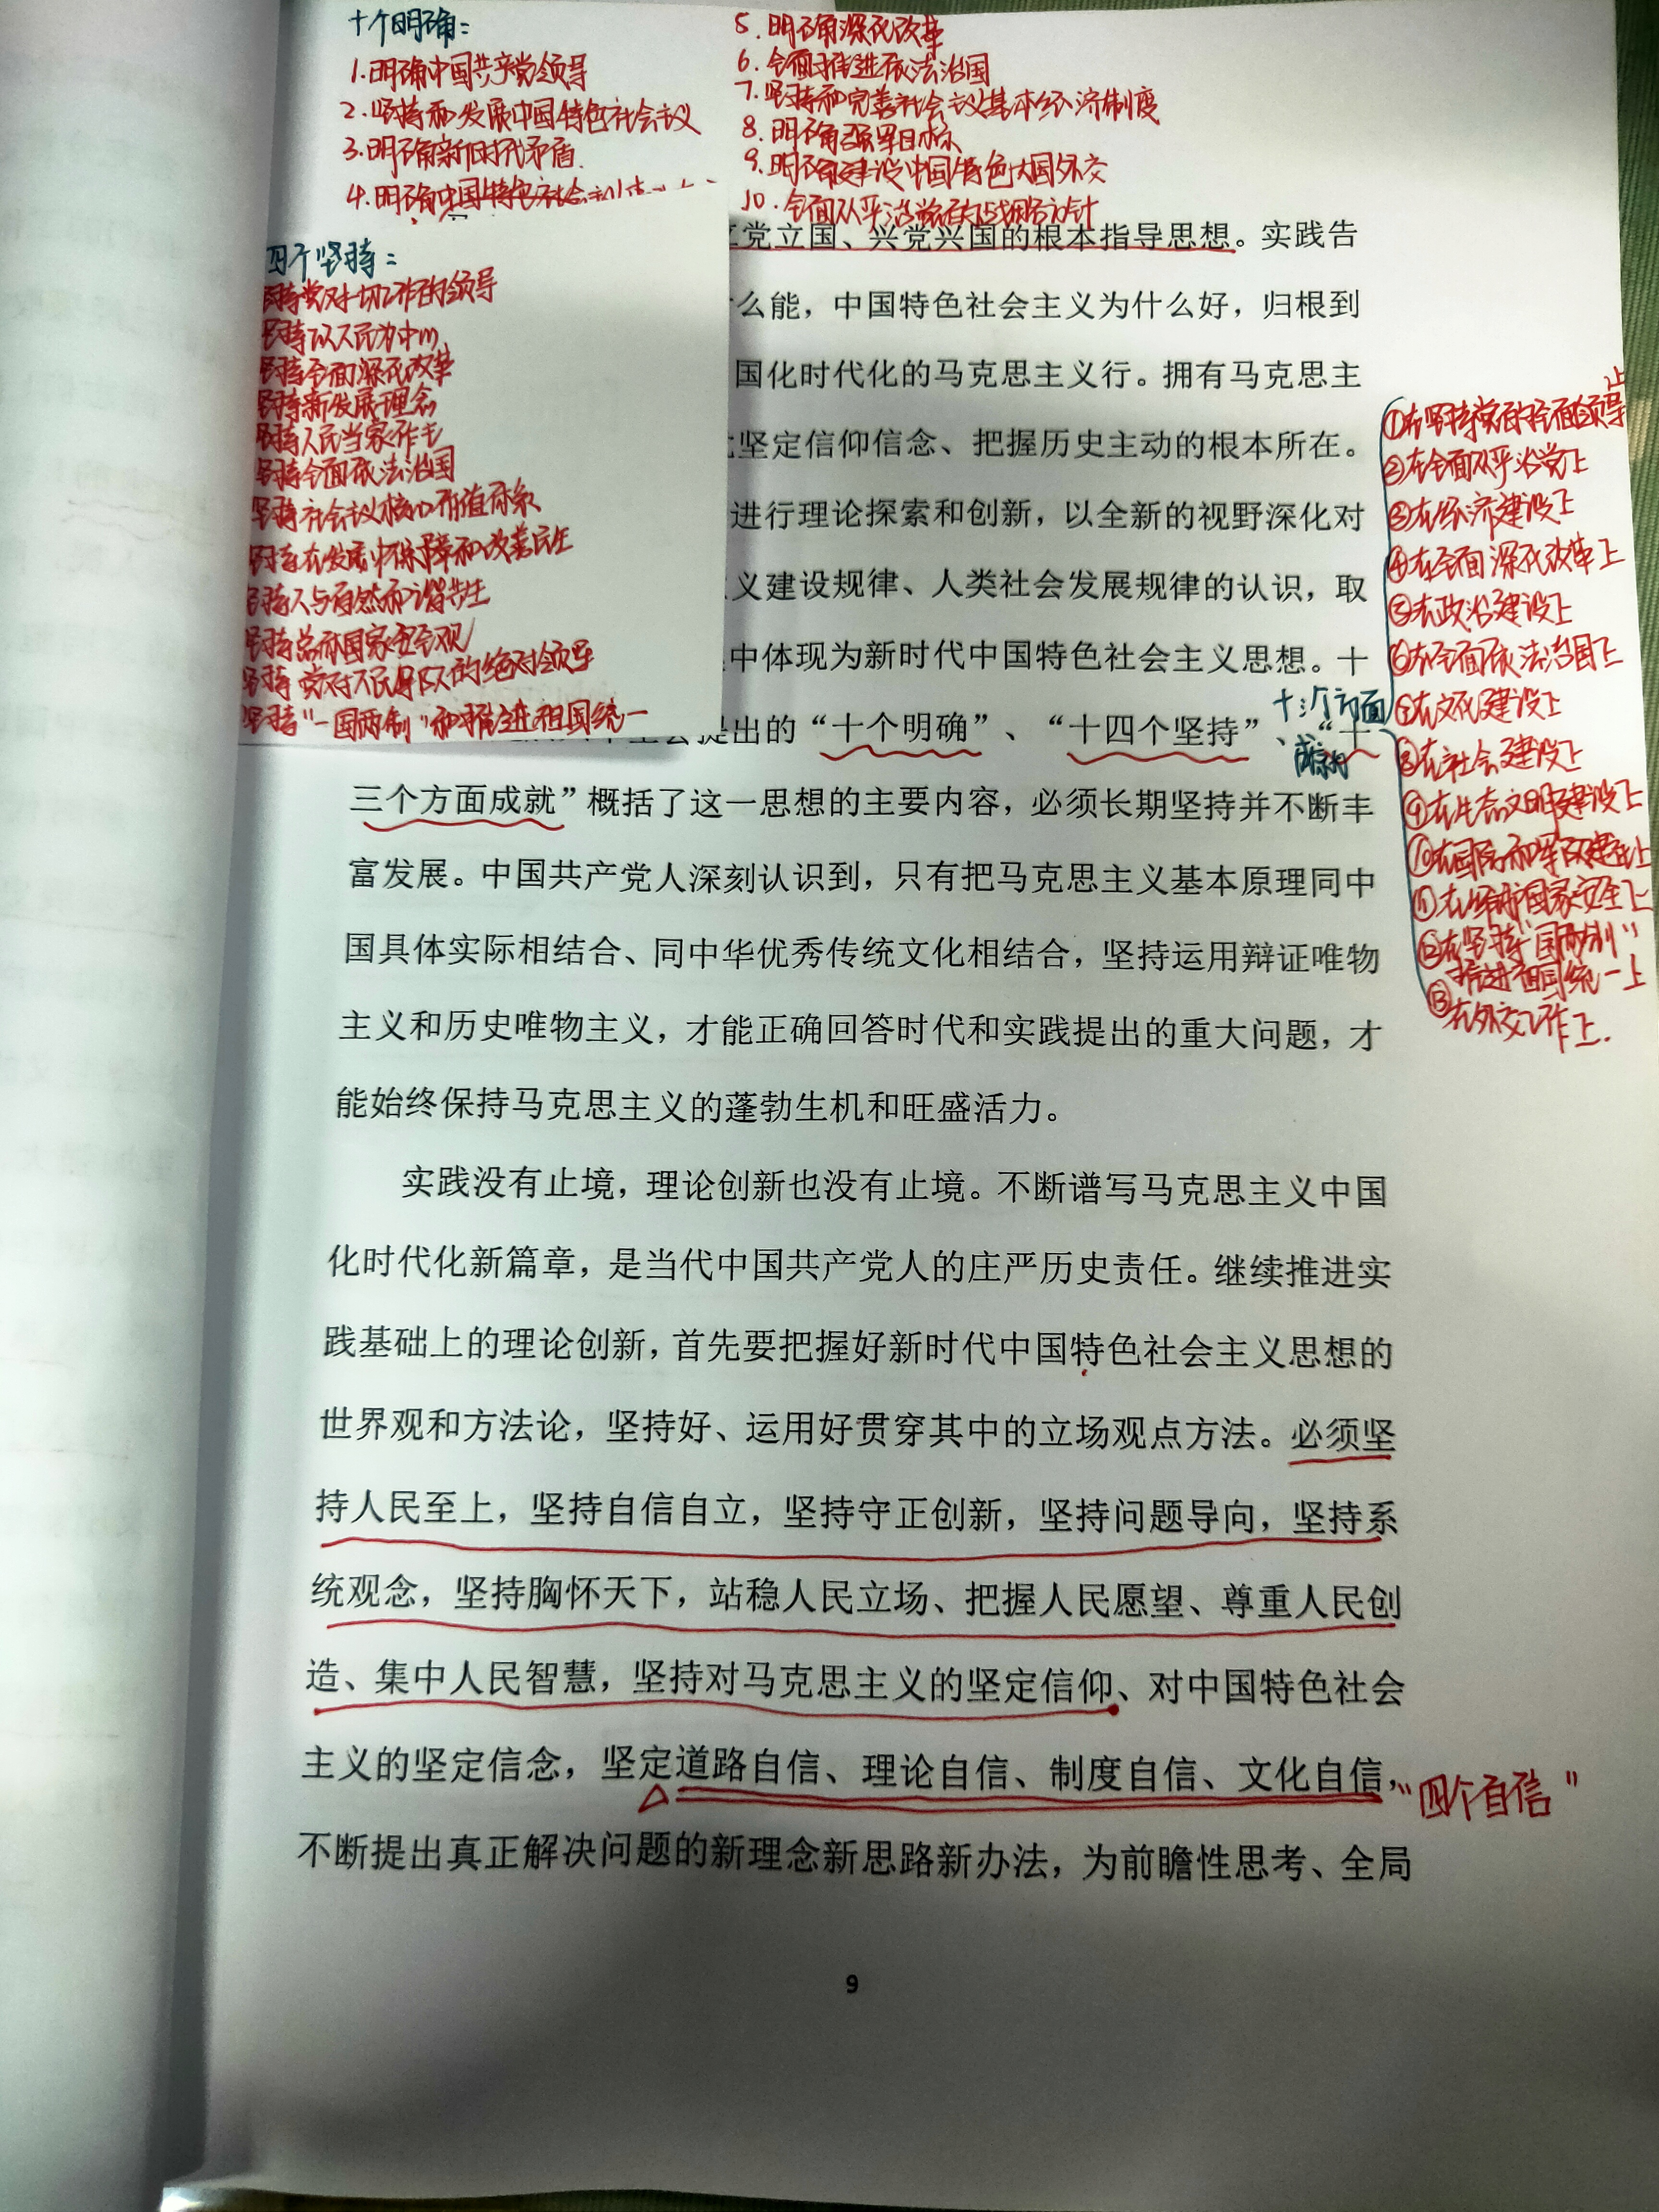 十个明确：
1.明确中国共产党领导
2.坚持和发展中国特色社会主义
3.明确新时代矛盾.
4.明确中国特色社会主义
5.明确深化改革
6.全面推进依法治国
7.坚持和完善社会主义基本经济制度
8.明确强军目标
9.明确建设中国特色大国外交
10.全面从严治党的战略方针
四个坚持：
坚持党对一切工作的领导
坚持以人民为中心
坚持全面深化改革
坚持新发展理念
坚持人民当家作主
坚持全面依法治国
坚持社会主义核心价值体系
坚持在发展中保障和改善民生
坚持人与自然和谐共生
坚持总体国家安全观
坚持党对人民军队的绝对领导
坚持“一国两制”和推进祖国统一
党立国、兴党兴国的根本指导思想。实践告
么能，中国特色社会主义为什么好，归根到
国化时代化的马克思主义行。拥有马克思主
坚定信仰信念、把握历史主动的根本所在。
进行理论探索和创新，以全新的视野深化对
义建设规律、人类社会发展规律的认识，取
中体现为新时代中国特色社会主义思想。十
提出的“十个明确”、“十四个坚持”、“十
三个方面成就”概括了这一思想的主要内容，必须长期坚持并不断丰
富发展。中国共产党人深刻认识到，只有把马克思主义基本原理同中
国具体实际相结合、同中华优秀传统文化相结合，坚持运用辩证唯物
主义和历史唯物主义，才能正确回答时代和实践提出的重大问题，才
能始终保持马克思主义的蓬勃生机和旺盛活力。
实践没有止境，理论创新也没有止境。不断谱写马克思主义中国
化时代化新篇章，是当代中国共产党人的庄严历史责任。继续推进实
践基础上的理论创新，首先要把握好新时代中国特色社会主义思想的
世界观和方法论，坚持好、运用好贯穿其中的立场观点方法。必须坚
持人民至上，坚持自信自立，坚持守正创新，坚持问题导向，坚持系
统观念，坚持胸怀天下，站稳人民立场、把握人民愿望、尊重人民创
造、集中人民智慧，坚持对马克思主义的坚定信仰、对中国特色社会
主义的坚定信念，坚定道路自信、理论自信、制度自信、文化自信，
“四个自信”
不断提出真正解决问题的新理念新思路新办法，为前瞻性思考、全局
9
十三个方面
成就
①在坚持党的全面领导上
②在全面从严治党上
③在经济建设上
④在全面深化改革上
⑤在政治建设上
⑥在全面依法治国上
⑦在文化建设上
⑧在社会建设上
⑨在生态文明建设上
⑩在国防和军队建设上
⑪在维护国家安全上
⑫在坚持“一国两制”
推进祖国统一上
⑬在外交工作上.